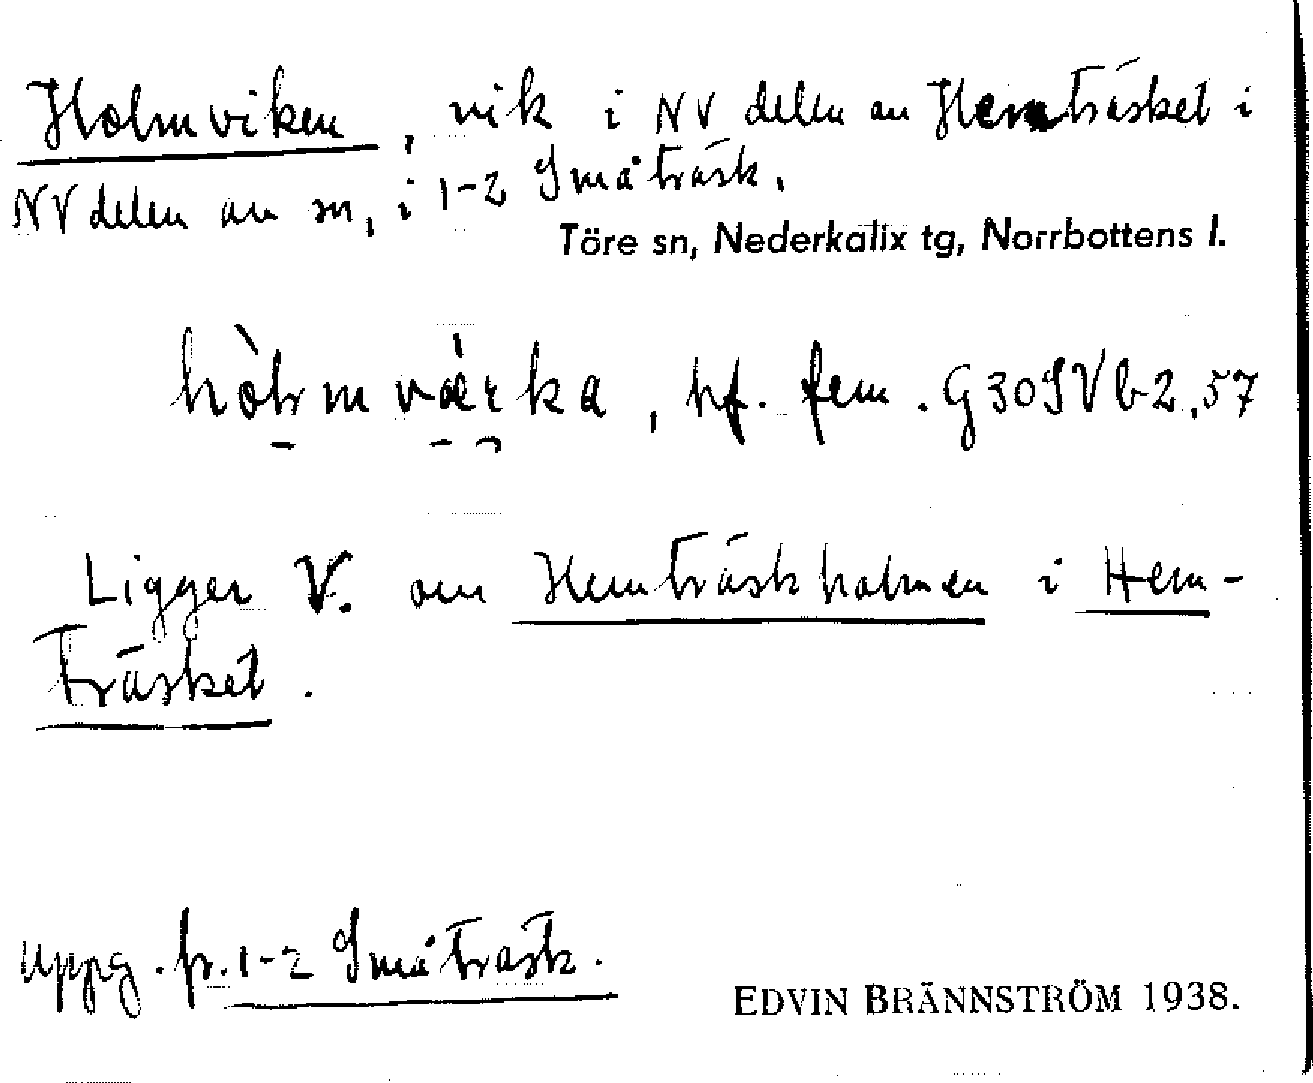 Holmviken, vik i NV delen av Hemträsket i
NV delen av sn, i 1-2 Småträsk.
Töre sn, Nederkalix tg, Norrbottens l.
hf. fem. G30SVb2,57
Ligger V. om Hemträskholmen i Hem-
träsket.
Uppg. fr. 1-2 Småträsk.
EDVIN BRÄNNSTRÖM 1938.